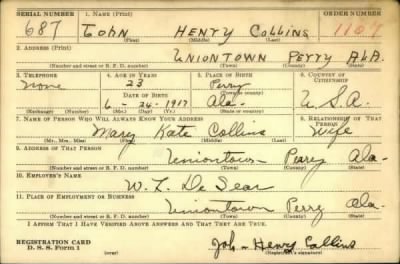 SERIAL NUMBER 1. NAME (Print) ORDER NUMBER
687 John Henry Collins 1107
(First) (Middle) (Last)
2. ADDRESS (Print)
Uniontown Perry Ala.
(Number and street or R. F. D. number) (Town) (County) (State)
3. TELEPHONE 4. AGE IN YEARS 5. PLACE OF BIRTH 6. COUNTRY OF CITIZENSHIP
None 23 Perry
DATE OF BIRTH (Town or county)
6-24-1917 Ala- U.S.A.
(Exchange) (Number) (Mo.) (Day) (Yr.) (State or country)
7. NAME OF PERSON WHO WILL ALWAYS KNOW YOUR ADDRESS 8. RELATIONSHIP OF THAT PERSON
Mary Kate Collins Wife
(Mr., Mrs., Miss) (First) (Middle) (Last)
9. ADDRESS OF THAT PERSON
Uniontown Perry Ala-
(Number and street or R. F. D. number) (Town) (County) (State)
10. EMPLOYER'S NAME
W. L. De Sear
11. PLACE OF EMPLOYMENT OR BUSINESS
Uniontown Perry Ala-
(Number and street or R. F. D. number) (Town) (County) (State)
I AFFIRM THAT I HAVE VERIFIED ABOVE ANSWERS AND THAT THEY ARE TRUE.
REGISTRATION CARD John-Henry Collins
D. S. S. Form 1 (over) (Registrant's signature)